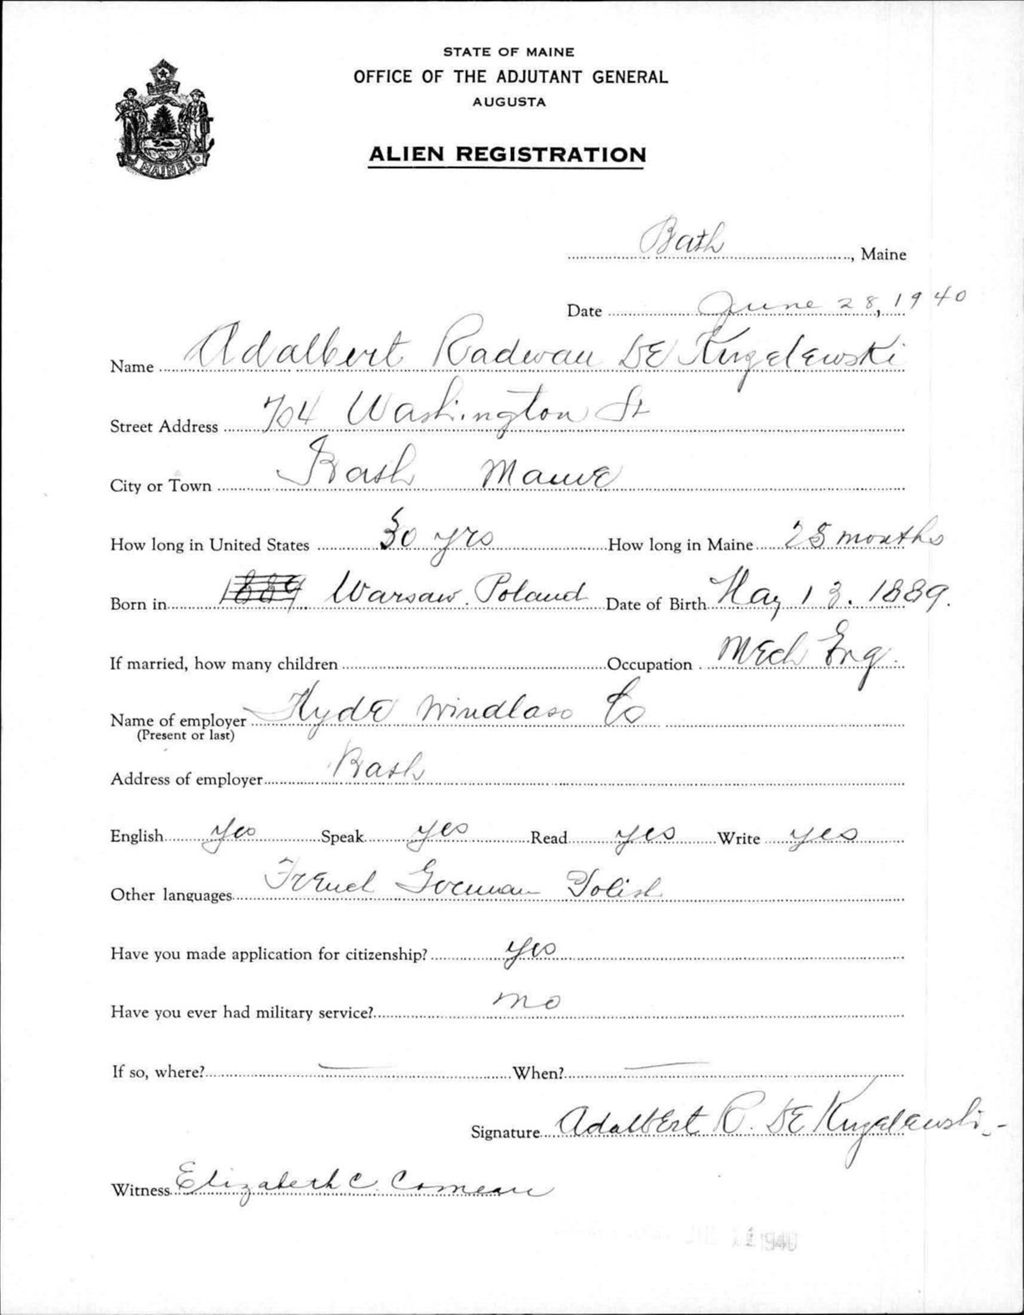 STATE OF MAINE
OFFICE OF THE ADJUTANT GENERAL
AUGUSTA
ALIEN REGISTRATION
MAINE
Bath, Maine
Date June 28, 1940
Name Adalbert Radwan DE Kugelewski
Street Address 704 Washington St
City or Town Bath Maine
How long in United States 30 yrs How long in Maine 25 months
Born in 1889 Warsaw. Poland Date of Birth May 13. 1889.
If married, how many children Occupation Mech Eng.
Name of employer Hyde Windlass Co
(Present or last)
Address of employer Bath
English yes Speak yes Read yes Write yes
Other languages French German Polish
Have you made application for citizenship? yes
Have you ever had military service? no
If so, where? — When? —
Signature Adalbert R. DE Kugelewski
Witness Elizabeth C. Comeau
1940